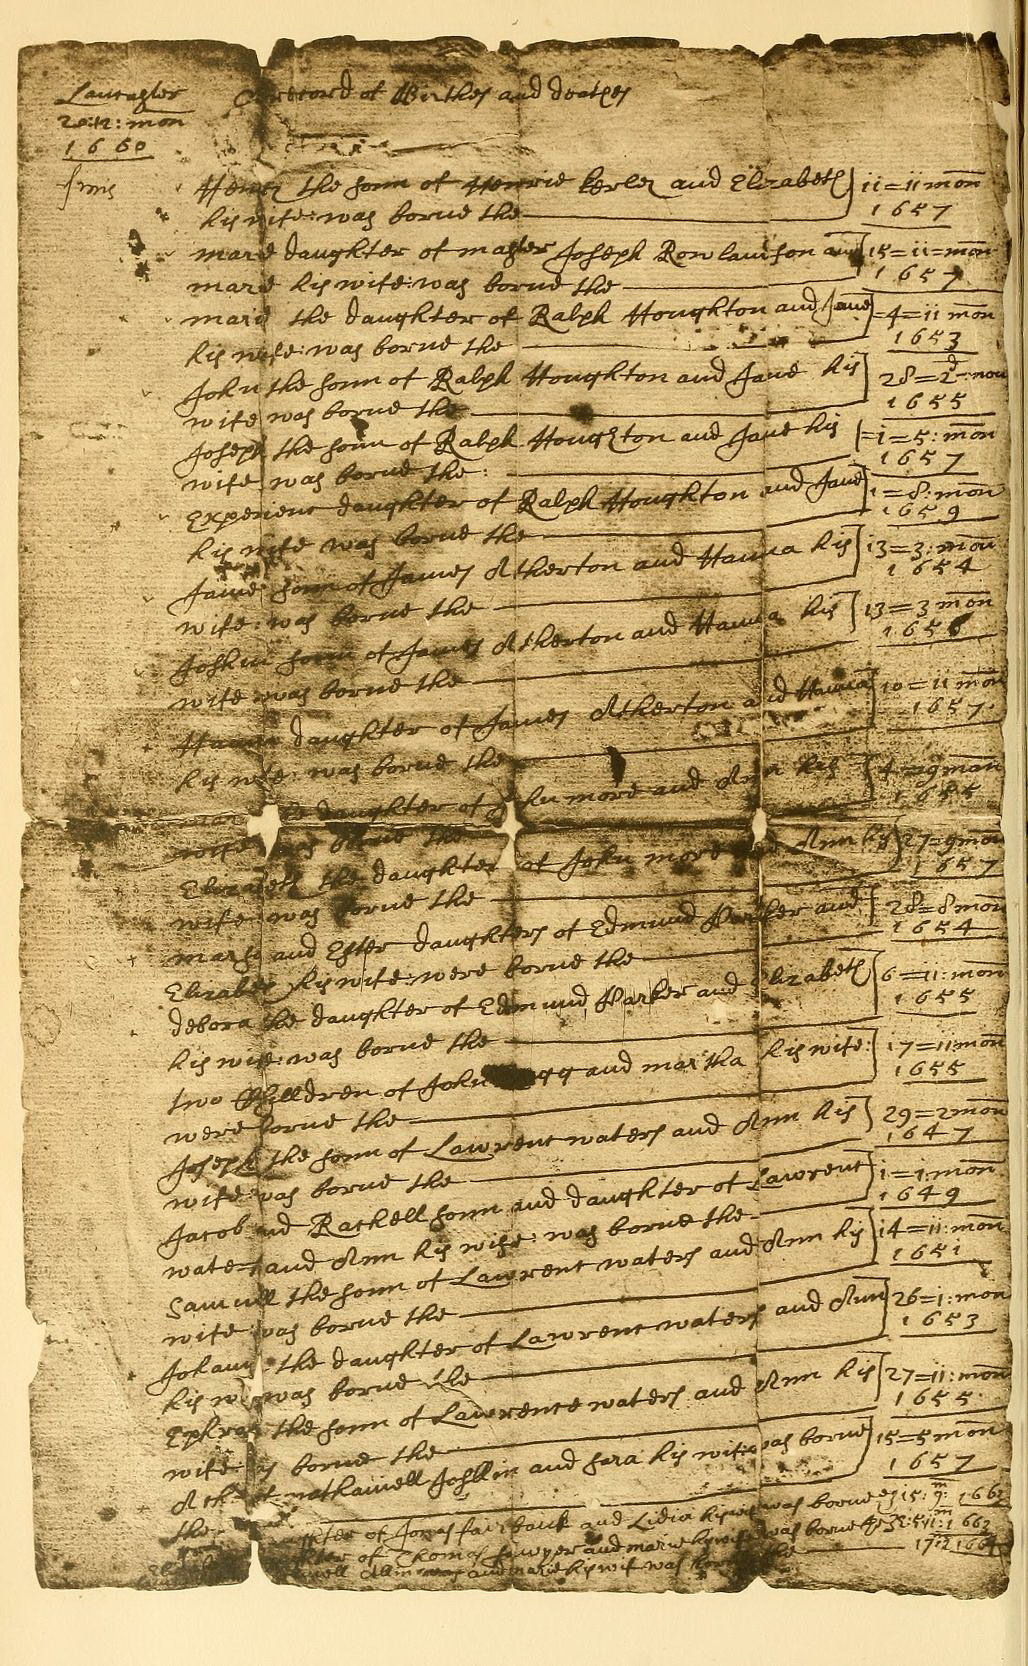 Lancaster
A record of Birthes and deathes
20:12: mon
1660
Henry the sonn of Henrie Kerley and Elizabeth 11=11 mon
his wife: was borne the 1657
marie daughter of master Joseph Rowlanson and 15=11=mon
marie his wife: was borne the 1657
marie the daughter of Ralph Houghton and Jane =4=11 mon
his wife: was borne the 1653
John the sonn of Ralph Houghton and Jane his 28=2d=mon
wife was borne the 1655
Joseph the sonn of Ralph Houghton and Jane his =1=5: mon
wife was borne the: 1657
Experienc daughter of Ralph Houghton and Jane 1=8: mon
his wife was borne the 1659
James sonn of James Atherton and Hanna his 13=3: mon
wife: was borne the 1654
Joshua sonn of James Atherton and Hanna his 13=3 mon
wife was borne the 1656
Hanna daughter of James Atherton and Hanna 10=11 mon
his wife: was borne the 1657
daughter of John more and Ann his =9 mon
wife was borne the 1655
Elizabeth the daughter of John more and Ann his 27=9 mon
wife was borne the 1657
mary and Ester daughters of Edmund Parker and 28=8 mon
Elizabeth his wife: were borne the 1654
debora the daughter of Edmund Parker and Elizabeth 6=11: mon
his wife: was borne the 1655
two Chilldren of John and martha his wife: 17=11 mon
were borne the 1655
Joseph the sonn of Lawrenc waters and Ann his 29=2 mon
wife: was borne the 1647
Jacob and Rachell sonn and daughter of Lawrenc 1=1: mon
waters and Ann his wife: was borne the 1649
Samuell the sonn of Lawrenc waters and Ann his 14=11: mon
wife was borne the 1651
Johana the daughter of Lawrenc waters and Ann 26=1: mon
his was borne the 1653
Ephraim the sonn of Lawrence waters and Ann his 27=11: mon
wife borne the 1655
nathaniell Joshlin and sara his wife: was borne 15=5 mon
the 1657
of Jonas fairbank and Lidia his wife was borne 15: 9: 1661
of Thomas Sawyer and marie his wife was borne 1662
and marie his wife was borne the